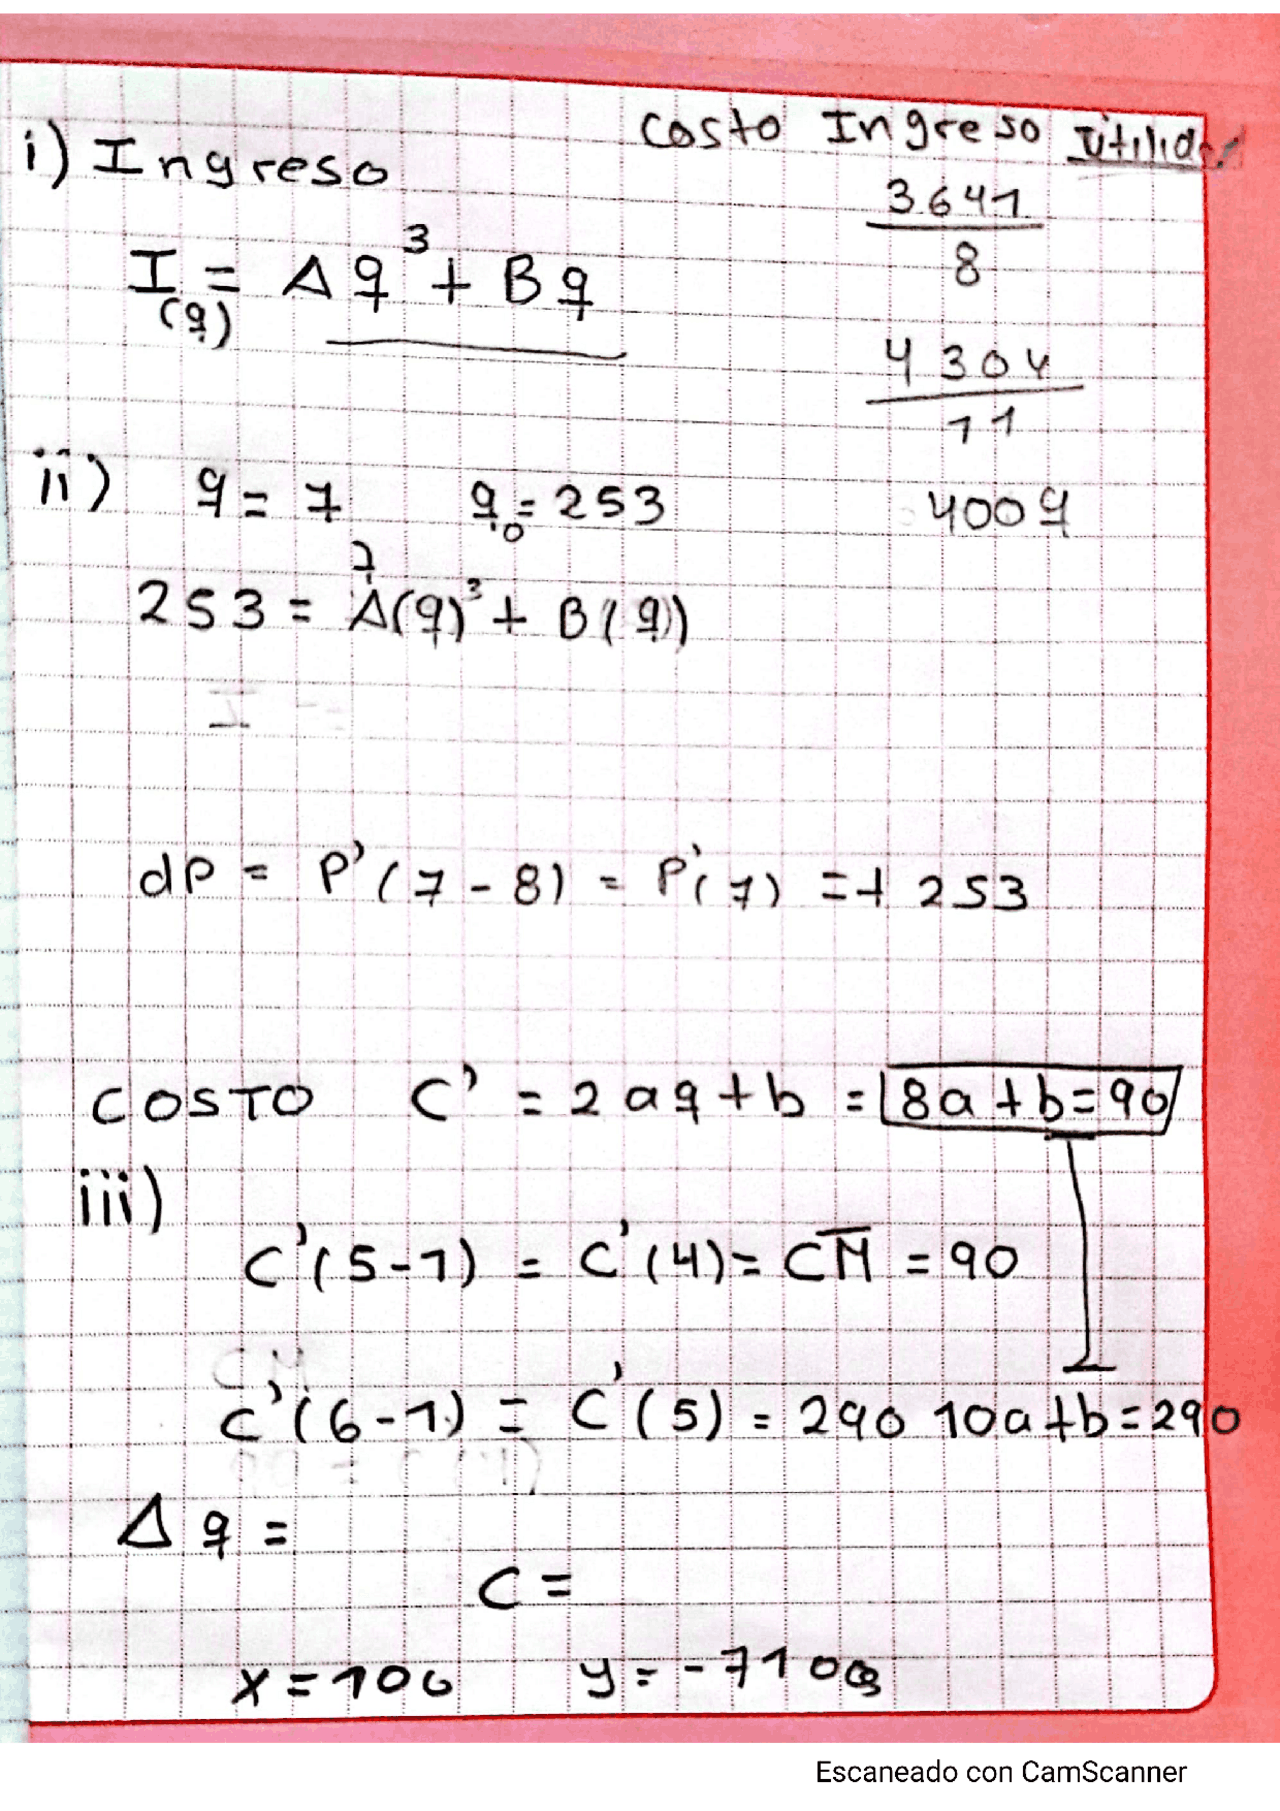 Costo Ingreso Utilidad
i) Ingreso
3641
8
I(q) = Aq³ + Bq
4304
11
ii) q = 7 q₀ = 253
4009
7
253 = A(q)³ + B(q)
dP = P'(7-8) = P'(7) = + 253
COSTO C' = 2aq + b = 8a + b = 90
iii)
C'(5-1) = C'(4) = CM̅ = 90
C'(6-1) = C'(5) = 290 10a + b = 290
Δq =
C =
x = 100 y = -710
Escaneado con CamScanner